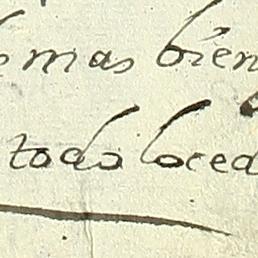 s mas bien
todo loced